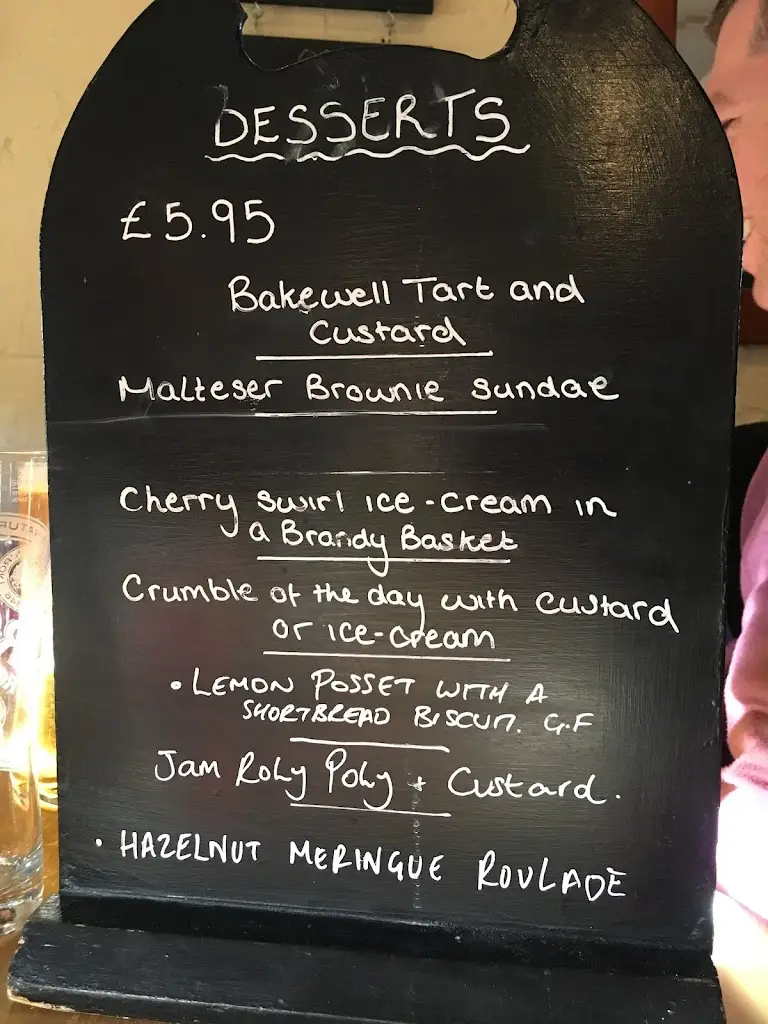 DESSERTS
£5.95
Bakewell Tart and
Custard
Malteser Brownie Sundae
Cherry Swirl ice-cream in
a Brandy Basket
Crumble of the day with custard
or ice-cream
• LEMON POSSET WITH A
SHORTBREAD BISCUIT. G.F
Jam Roly Poly + Custard.
• HAZELNUT MERINGUE ROULADE